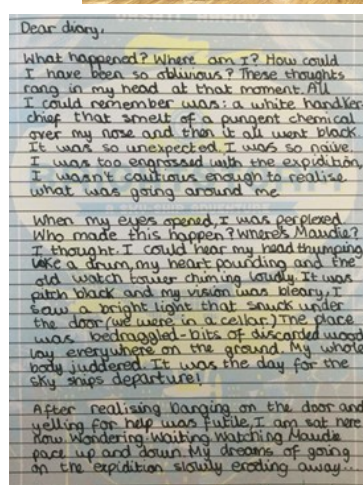 Dear diary,
What happened? Where am I? How could
I have been so oblivious? These thoughts
rang in my head at that moment. All
I could remember was: a white handker
chief that smelt of a pungent chemical
over my nose and then it all went black.
It was so unexpected. I was so naive.
I was too engrossed with the expidition,
I wasn't cautious enough to realise
what was going around me
When my eyes opened, I was perplexed.
Who made this happen? Where's Maudie?
I thought. I could hear my head thumping
like a drum, my heart pounding and the
old watch tower chiming loudly. It was
pitch black and my vision was bleary, I
saw a bright light that snuck under
the door (we were in a cellar.) The place
was bedraggled-bits of discarded wood
lay everywhere on the ground. My whole
body juddered. It was the day for the
sky ships departure!
After realising banging on the door and
yelling for help was futile, I am sat here
now. Wondering. Waiting. Watching Maudie
pace up and down. My dreams of going
on the expidition slowly eroding away...